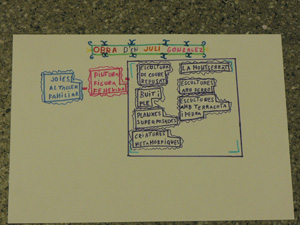 OBRA D'EN JULI GONZÁLEZ
JOIES
AL TALLER
FAMILIAR
PINTURA
FIGURA
FEMENINA
ESCULTURA
DE COURE
REPUSSAT
BUIT I
PLE
PLANXES
SUPERPOSADES
CRIATURES
METAMÒRFIQUES
LA MONTSERRAT
ESCULTURES
AMB FERRO
ESCULTURES
AMB TERRACOTA
I PEDRA